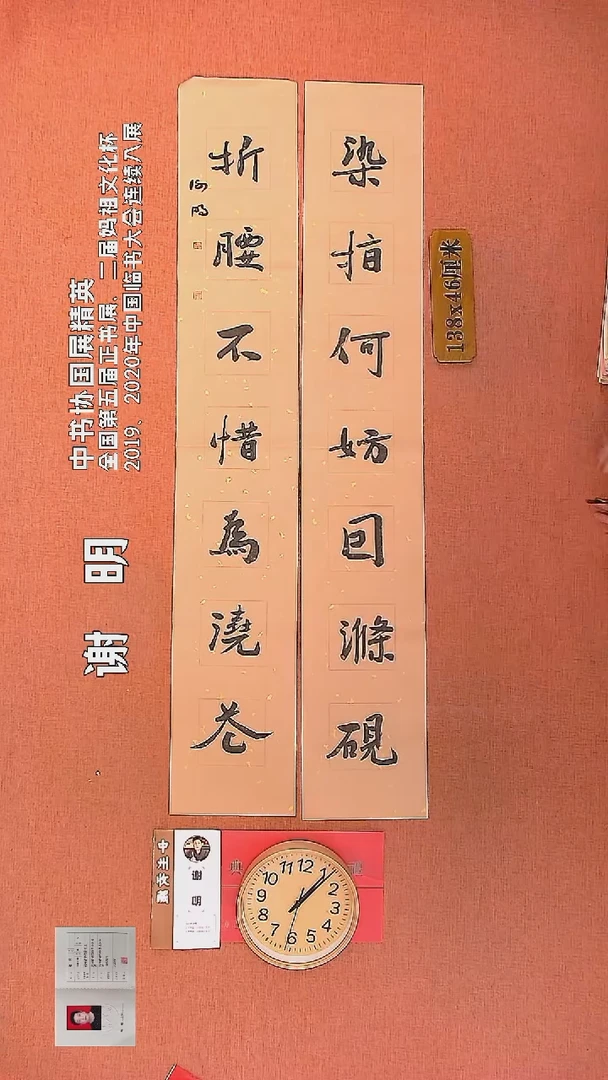 染指何妨囙滌硯
折腰不惜為澆花
谢明
138x46厘米
中书协国展精英
全国第五届正书展、二届妈祖文化杯
2019、2020年中国临书大会连续入展
谢 明
谢 明
12
1
2
3
4
5
6
7
8
9
10
11